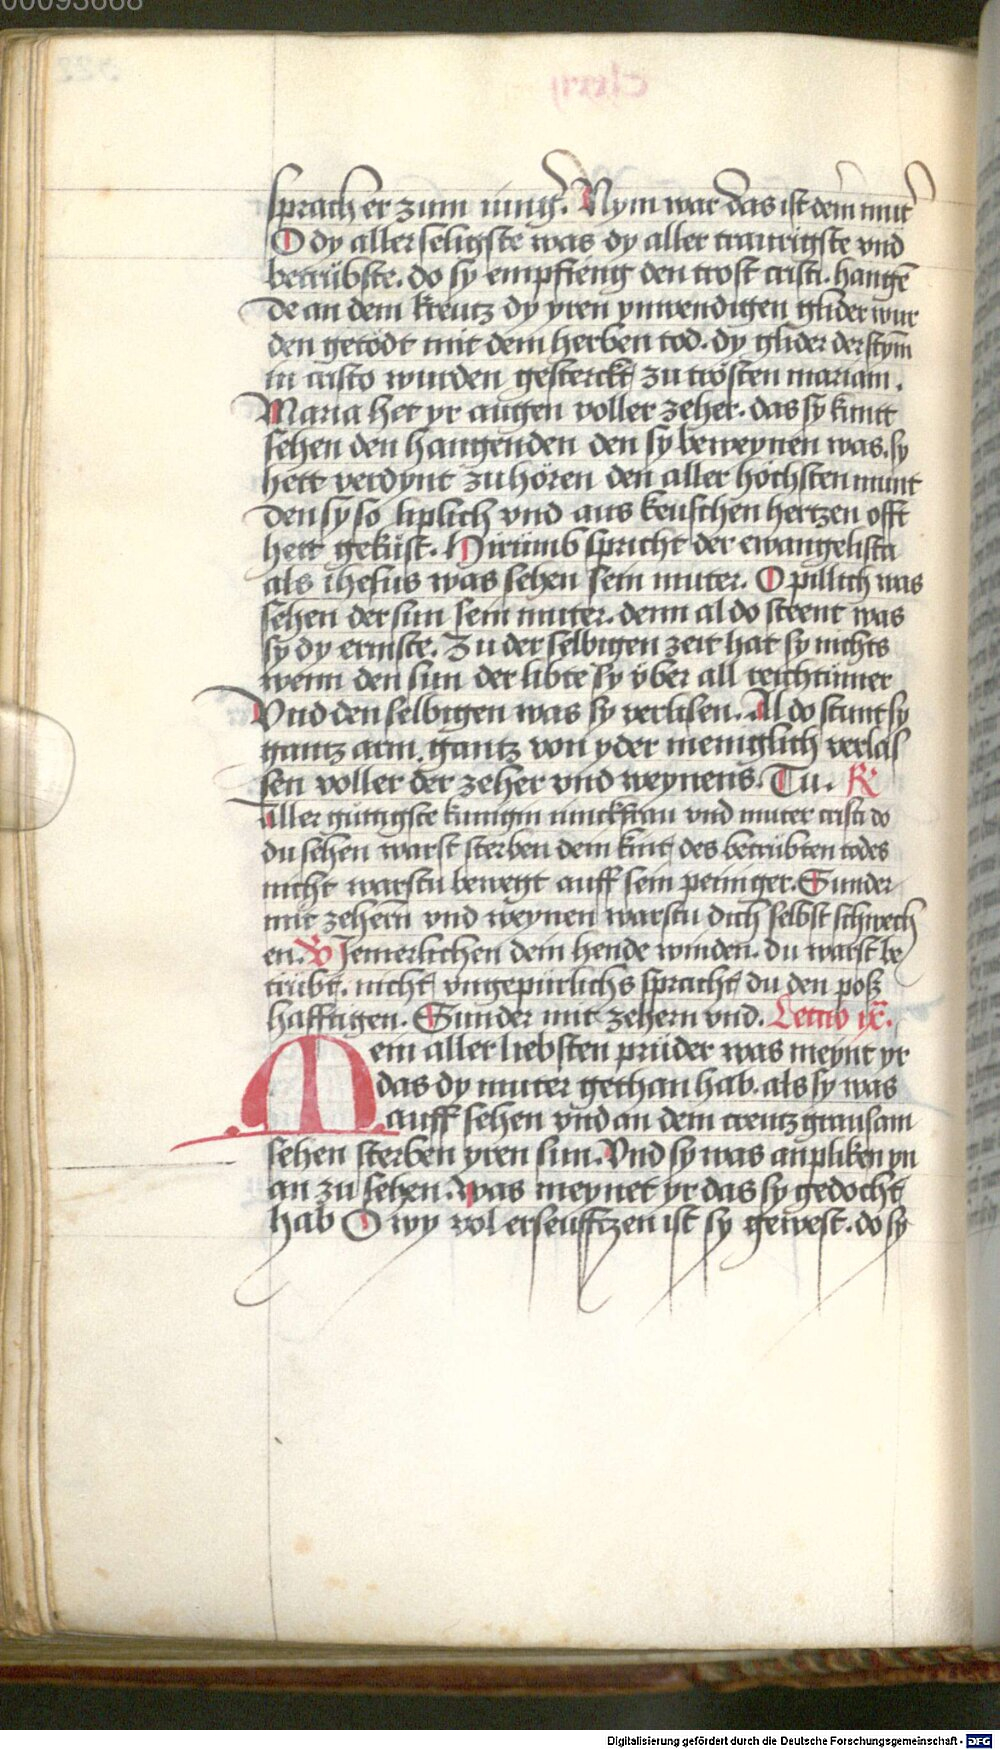 00093668
sprach er zum iung̅. Nym war das ist dein mut̅
O dy aller seligste was dy aller traurigste vnd
betrübste. do sy empfieng den trost cristi. hangē
de an dem kreutz dy yren ynwendigen glider wur
den getödt mit dem herben tod. dy glider der stym̅
in cristo wurden gesterckt zu trösten mariam.
Maria het yr augen voller zeher. das sy kuntt
sehen den hangenden den sy beweynen was. sy
hett verdynt zu hören den aller höchsten munt
den sy so liplich vnd aus keuschen hertzen offt
hett geküst. Hirümb spricht der ewangelista
als ihesus was sehen sein muter. O pillich was
sehen der sun sein muter. denn al do steent was
sy dy ermste. Zu der selbigen zeit hat sy nichts
wenn den sun der libte sy yber all reichtümer
Vnd den selbigen was sy verlisen. Al do stunt sy
gantz arm. gantz von yder meniglich verlas
sen voller der zeher vnd weynens. Tu. R
Aller gütigste kunigin iunckfrau vnd muter cristi do
du sehen warst sterben dein kint des betrübten todes
nicht warstu bewegt auff sein peiniger. Sunder
mit zehern vnd weynen warstu dich selbst schwech
en. V Jemerlichen dein hende winden. du warst be
trübt. nicht vngepürlichs sprachst du den posz
hafftigen. Sunder mit zehern vnd. Lectio ix.
Mein aller liebsten prüder was meynt yr
das dy muter gethan hab. als sy was
auff sehen vnd an dem creutz grausam
sehen sterben yren sun. Vnd sy was anpliken yn
an zu sehen. was meynet yr das sy gedocht
hab O wy vol erseufftzen ist sy gewest. do sy
Digitalisierung gefördert durch die Deutsche Forschungsgemeinschaft - DFG